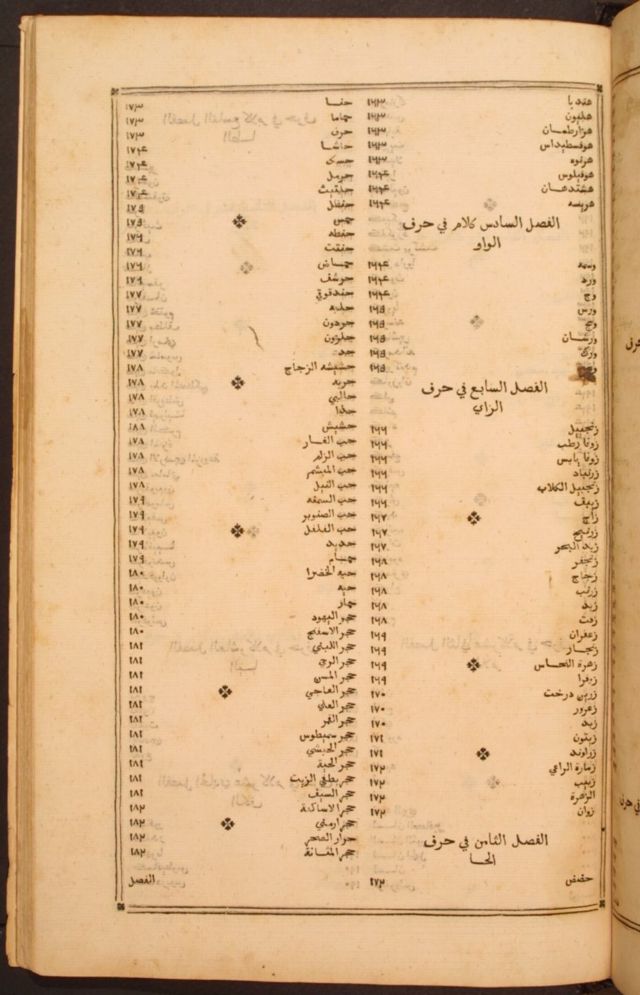 هندبا ١٦٣
هليون ١٦٣
هزارطعسان ١٦٣
هوفسطيداس ١٦٣
هرنوه ١٦٣
هوفيلوس ١٦٤
هشتدهان ١٦٤
هريسه ١٦٤
الفصل السادس كلام في حرف
الواو
وسمه ١٦٤
ورد ١٦٤
وج ١٦٤
ورس ١٦٥
ودح ١٦٥
ورشان ١٦٥
ورك ١٦٥
١٦٥
الفصل السابع في حرف
الزاي
زنجبيل ١٦٦
زوفا رطب ١٦٦
زوفا يابس ١٦٦
زرنباد ١٦٦
زنجبيل الكلاب ١٦٦
زيبق ١٦٦
زاج ١٦٧
زرنيخ ١٦٧
زبد البحر ١٦٧
زنجفر ١٦٨
زجاج ١٦٨
زرنب ١٦٨
زبد ١٦٨
زفت ١٦٨
زعفران ١٦٩
زنجار ١٦٩
زهرة النحاس ١٦٩
زوفرا ١٦٩
زرين درخت ١٧٠
زعرور ١٧٠
زبد ١٧٠
زيتون ١٧١
زراوند ١٧١
زمارة الراعي ١٧٢
زبيب ١٧٢
الزهرة ١٧٢
زوان ١٧٢
الفصل الثامن في حرف
الحا
حضض ١٧٢
حنا ١٧٣
حماما ١٧٣
حرف ١٧٣
حاشا ١٧٤
حسك ١٧٤
حرمل ١٧٤
حلتيت ١٧٤
حنظل ١٧٥
حمص ١٧٥
حنطه ١٧٦
١٧٦
حماض ١٧٦
حرشف ١٧٦
حندقوقي ١٧٧
حلبه ١٧٧
حردون ١٧٧
حلزون ١٧٧
١٧٧
حشيشه الزجاج ١٧٨
حربه ١٧٨
حالبي ١٧٨
حدا ١٧٨
حشيش ١٨٨
حب الغار ١٧٨
حب الزلم ١٧٨
حب الميشم ١٧٨
حب النيل ١٧٨
حب السمنه ١٧٩
حب الصنوبر ١٧٩
حب الفلفل ١٧٩
حديد ١٧٩
حمام ١٧٩
حبه الخضرا ١٨٠
حيه ١٨٠
حمار ١٨٠
حجر اليهود ١٨٠
حجر الاسفنج ١٨٠
حجر اللبني ١٨١
حجر الرحي ١٨١
حجر المسن ١٨١
حجر العاجي ١٨١
حجر العسلي ١٨١
حجر القمر ١٨١
حجر سميطوس ١٨١
حجر الحبشي ١٨١
حجر الحية ١٨١
حجر يطفي الزيت ١٨١
حجر السيف ١٨١
حجر الاساكفة ١٨٢
حجر ارمني ١٨٢
حرار الصخر ١٨٢
حجر المثانة ١٨٢
الفصل